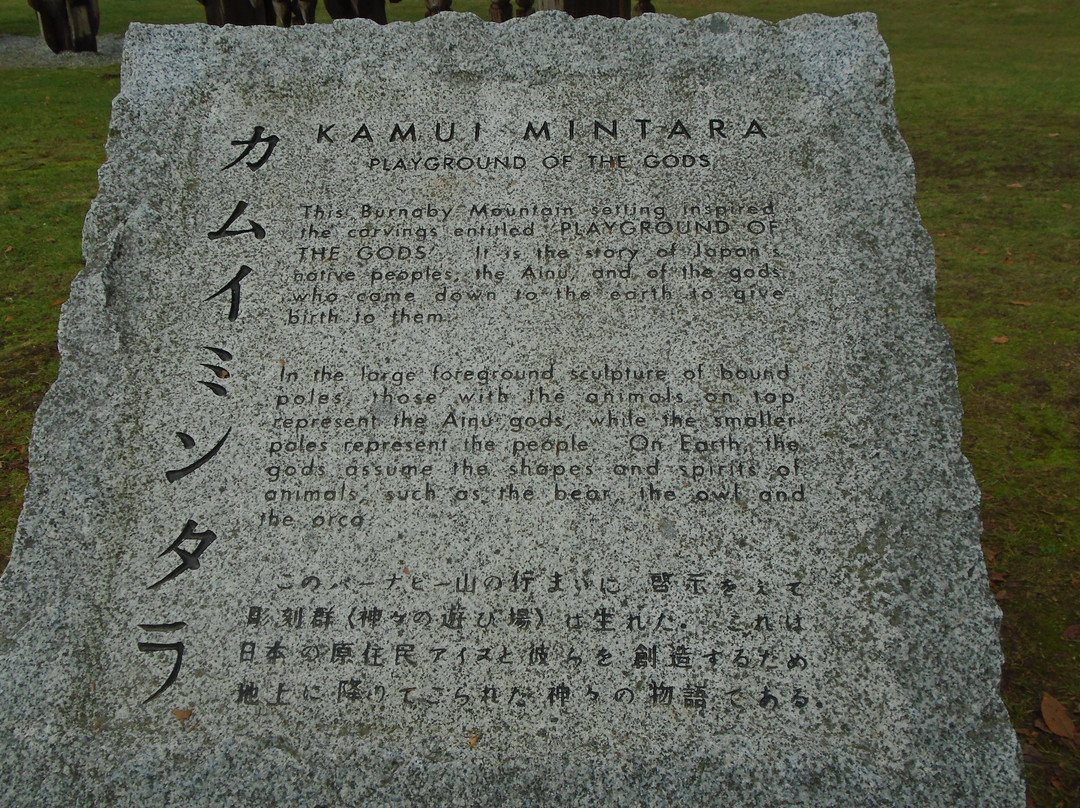 カムイミンタラ
KAMUI MINTARA
PLAYGROUND OF THE GODS
This Burnaby Mountain setting inspired
the carvings entitled 'PLAYGROUND OF
THE GODS'. It is the story of Japan's
native peoples, the Ainu, and of the gods
who came down to the earth to give
birth to them.
In the large foreground sculpture of bound
poles, those with the animals on top
represent the Ainu gods, while the smaller
poles represent the people. On Earth, the
gods assume the shapes and spirits of
animals, such as the bear, the owl and
the orca
このバーナビー山の佇まいに 啓示をえて
彫刻群(神々の遊び場)は生れた。これは
日本の原住民アイヌと彼らを創造するため
地上に降りてこられた神々の物語である。